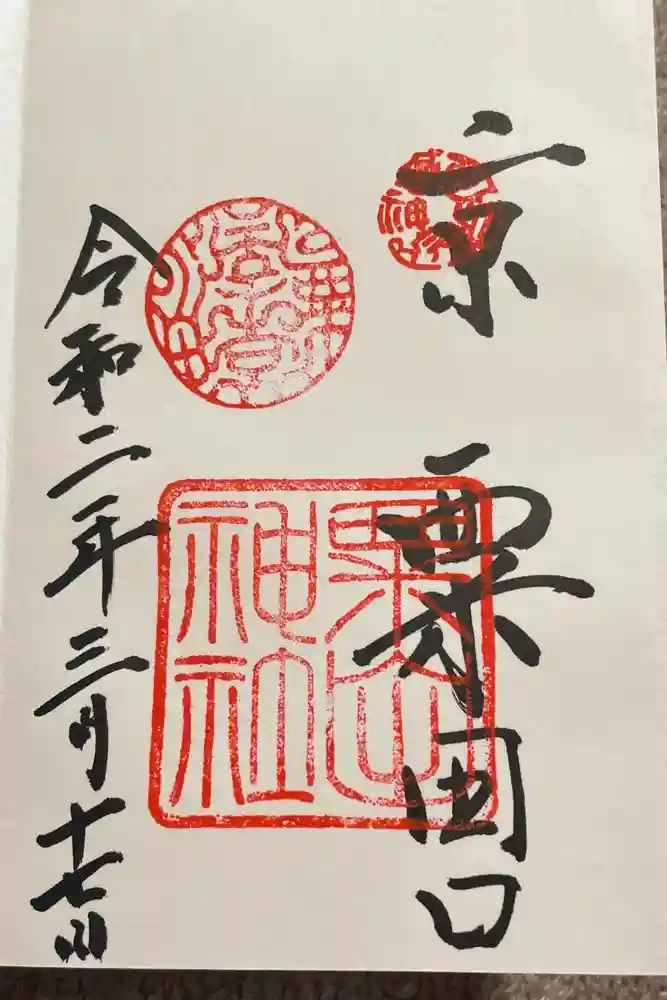 京 粟田口
粟田
神社
令和二年三月十七日